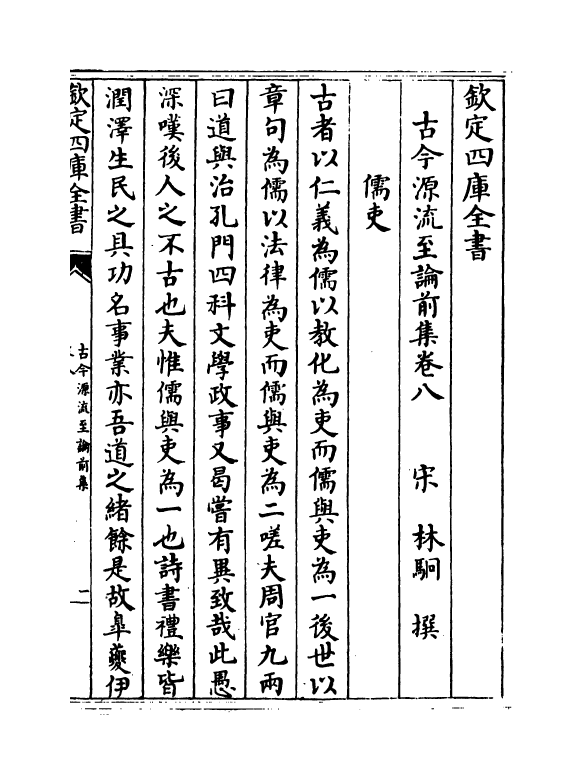 欽定四庫全書
古今源流至論前集卷八　宋　林駉　撰
儒吏
古者以仁義為儒以教化為吏而儒與吏為一後世以
章句為儒以法律為吏而儒與吏為二嗟夫周官九兩
曰道與治孔門四科文學政事又曷嘗有異致哉此愚
深嘆後人之不古也夫惟儒與吏為一也詩書禮樂皆
潤澤生民之具功名事業亦吾道之緒餘是故臯夔伊
欽定四庫全書
古今源流至論前集
二